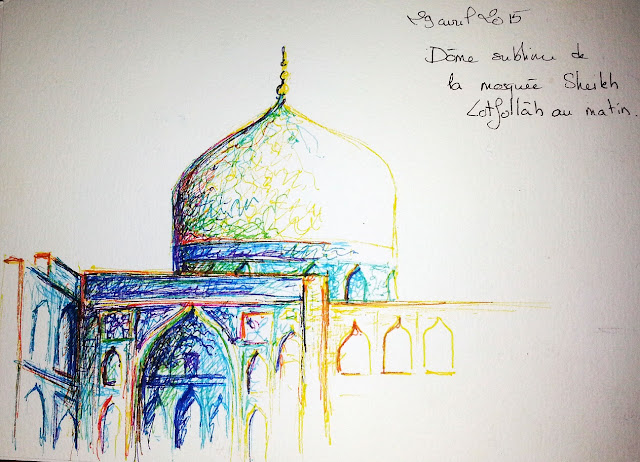 29 avril 2015
Dôme sublime de
la mosquée Sheikh
Lotfollâh au matin.